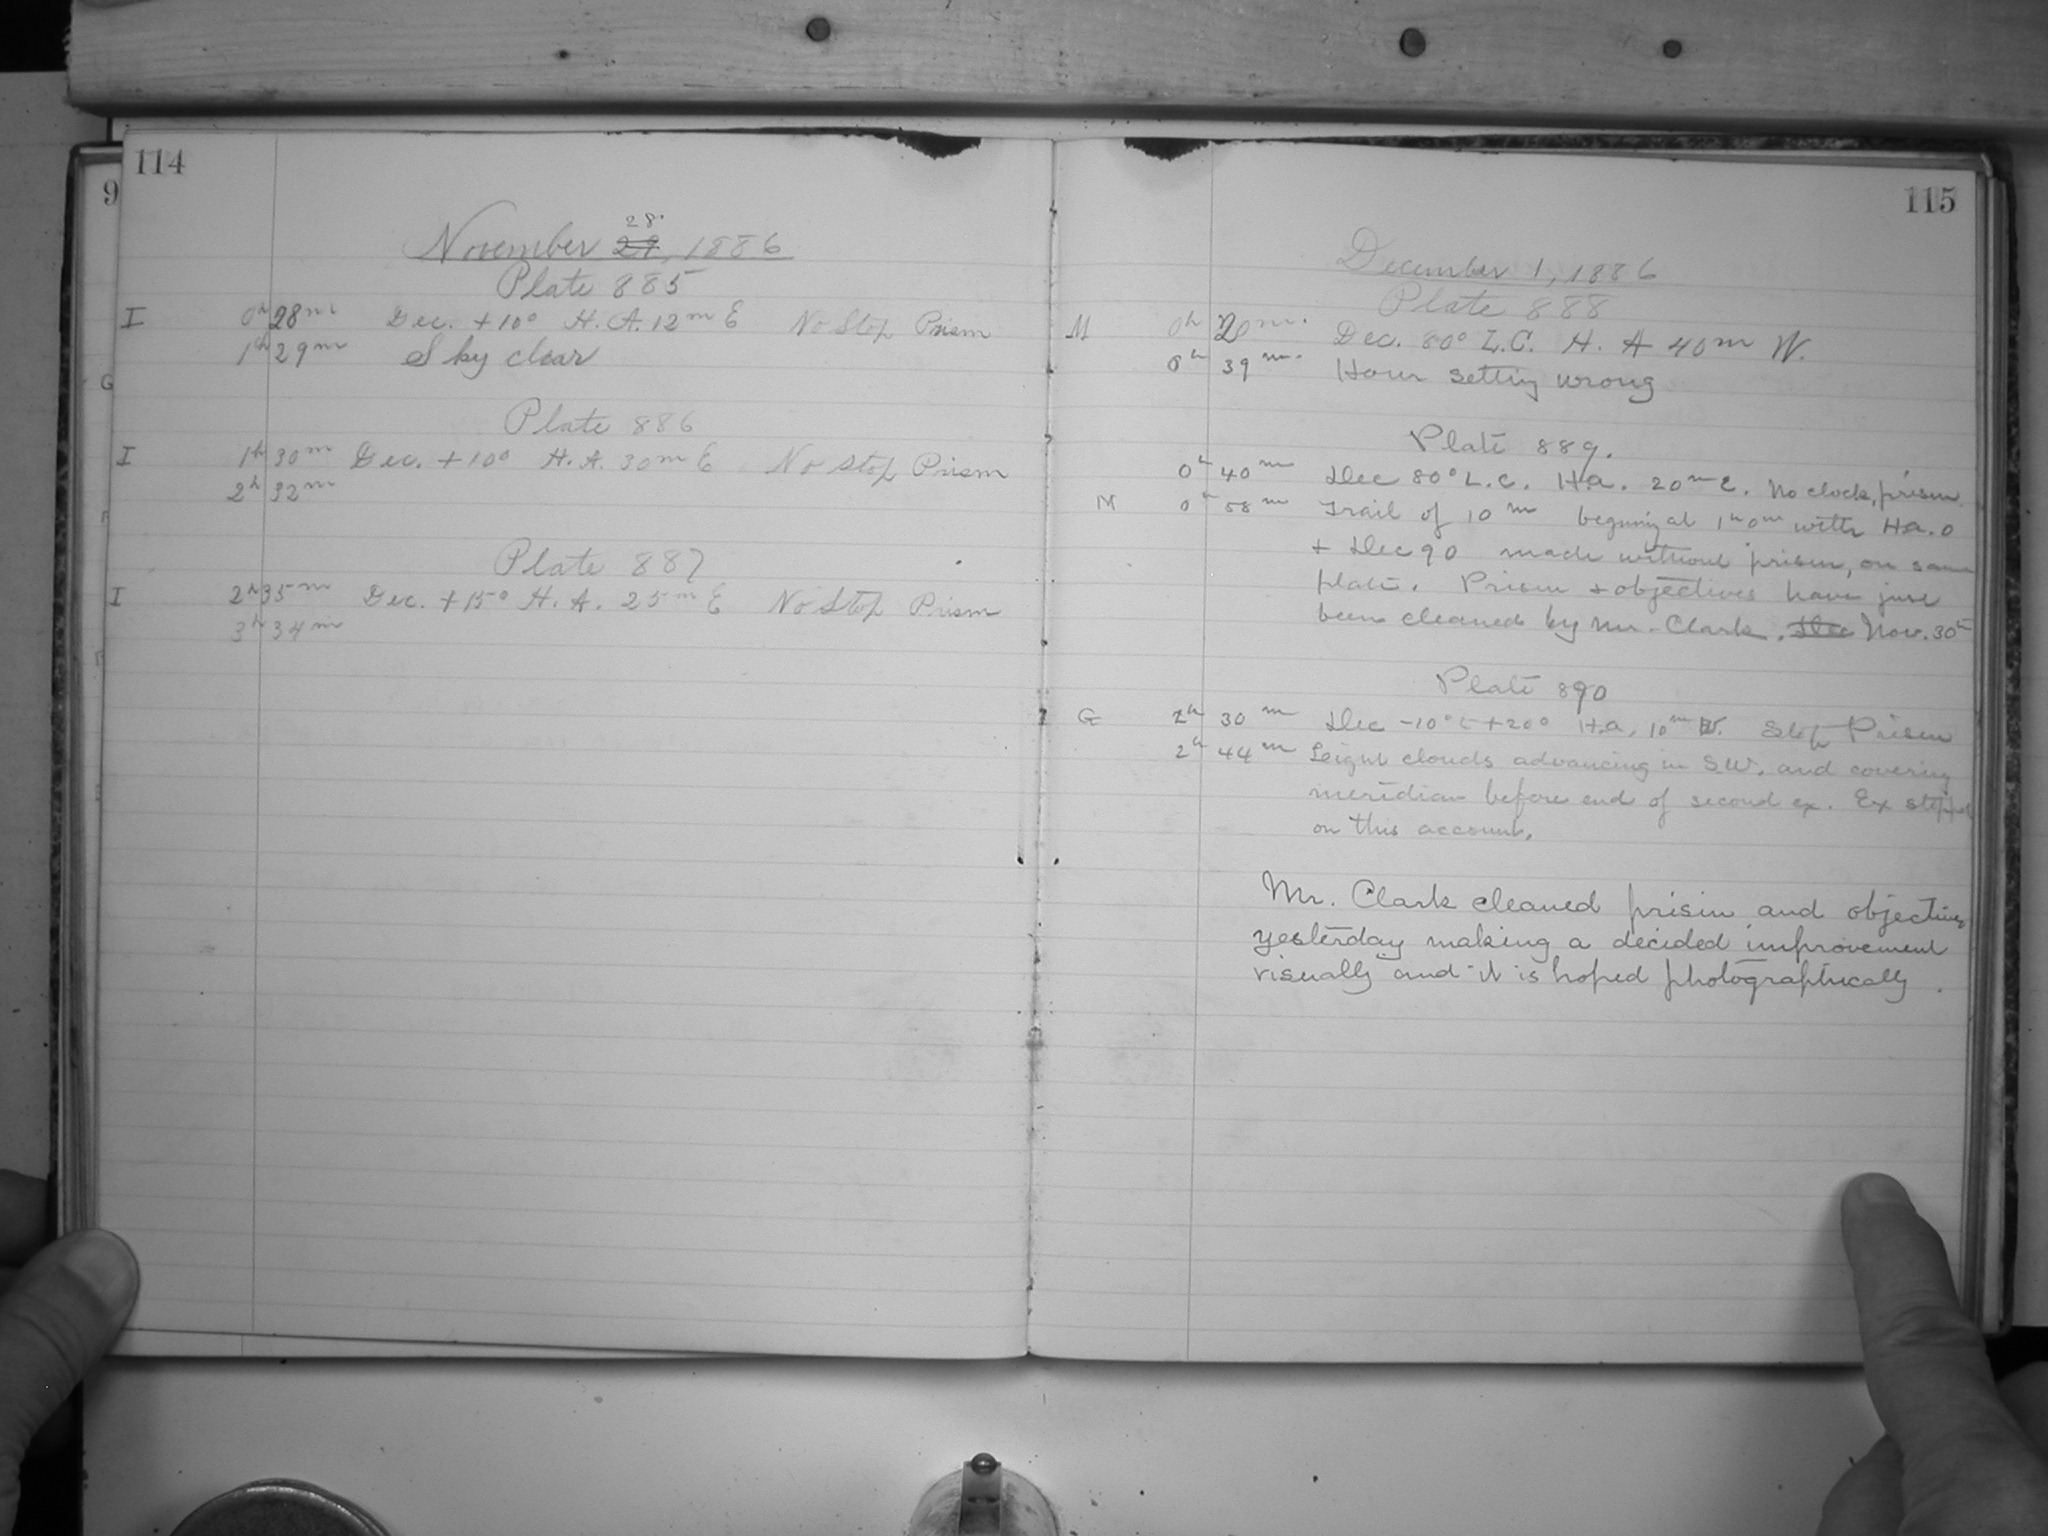 114
9
November 28. 29, 1886
Plate 885
I 0h 28m Dec. +10° H. A. 12m E No Stop Prism
1h 29m Sky clear
G
Plate 886
I 1h 30m Dec. +10° H. A. 30m E No Stop Prism
2h 32m
Plate 887
I 2h 35m Dec. +15° H. A. 25m E No Stop Prism
3h 34m
115
December 1, 1886
Plate 888
M 0h 20m. Dec. 80° L.C. H. A 40m W.
0h 39m. Hour setting wrong
Plate 889.
0h 40m Dec 80° L.C. H.a. 20m E. No clock, prism
M 0h 58m Trail of 10m begining at 1h 0m with Ha. 0
+ Dec 90 made without prism, on same
plate. Prism + objectives have just
been cleaned by Mr. Clark. Dec Nov. 30th
Plate 890
G 2h 30m Dec -10° t +20° H.a. 10m W. Stop Prism
2h 44m Light clouds advancing in S.W. and covering
meridian before end of second ex. Ex stopped
on this account.
Mr. Clark cleaned prism and objectives
yesterday making a decided improvement
visually and it is hoped photographically.